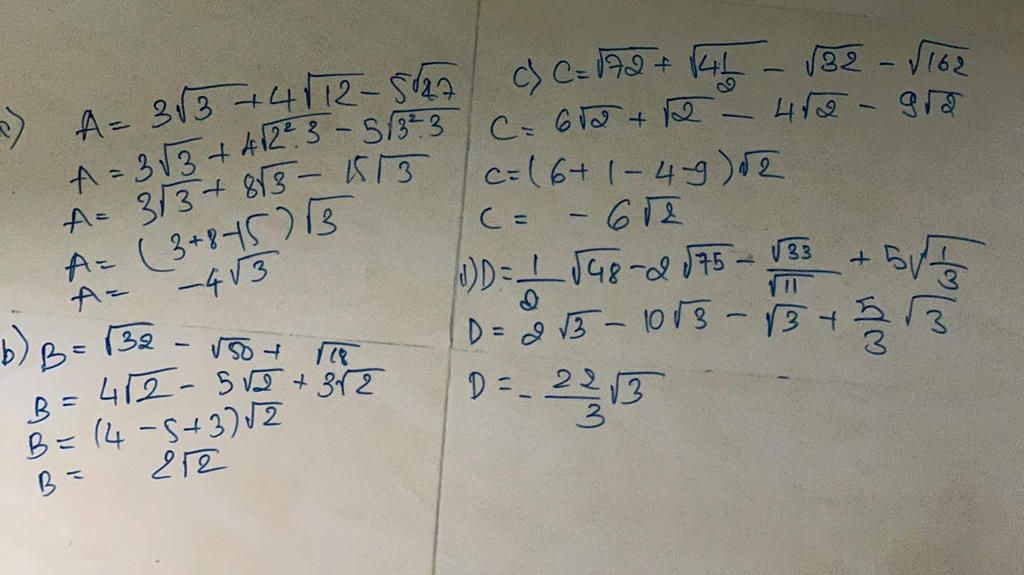 a) A = 3√3 + 4√12 − 5√27
A = 3√3 + 4√2².3 − 5√3².3
A = 3√3 + 8√3 − 15√3
A = (3+8−15)√3
A = −4√3
b) B = √32 − √50 + √18
B = 4√2 − 5√2 + 3√2
B = (4 − 5 + 3)√2
B = 2√2
c) C = √72 + √4 1/2 − √32 − √162
C = 6√2 + √2 − 4√2 − 9√2
C = (6 + 1 − 4 − 9)√2
C = − 6√2
d) D = 1/2 √48 − 2√75 − √33/√11 + 5√1/3
D = 2√3 − 10√3 − √3 + 5/3 √3
D = − 22/3 √3